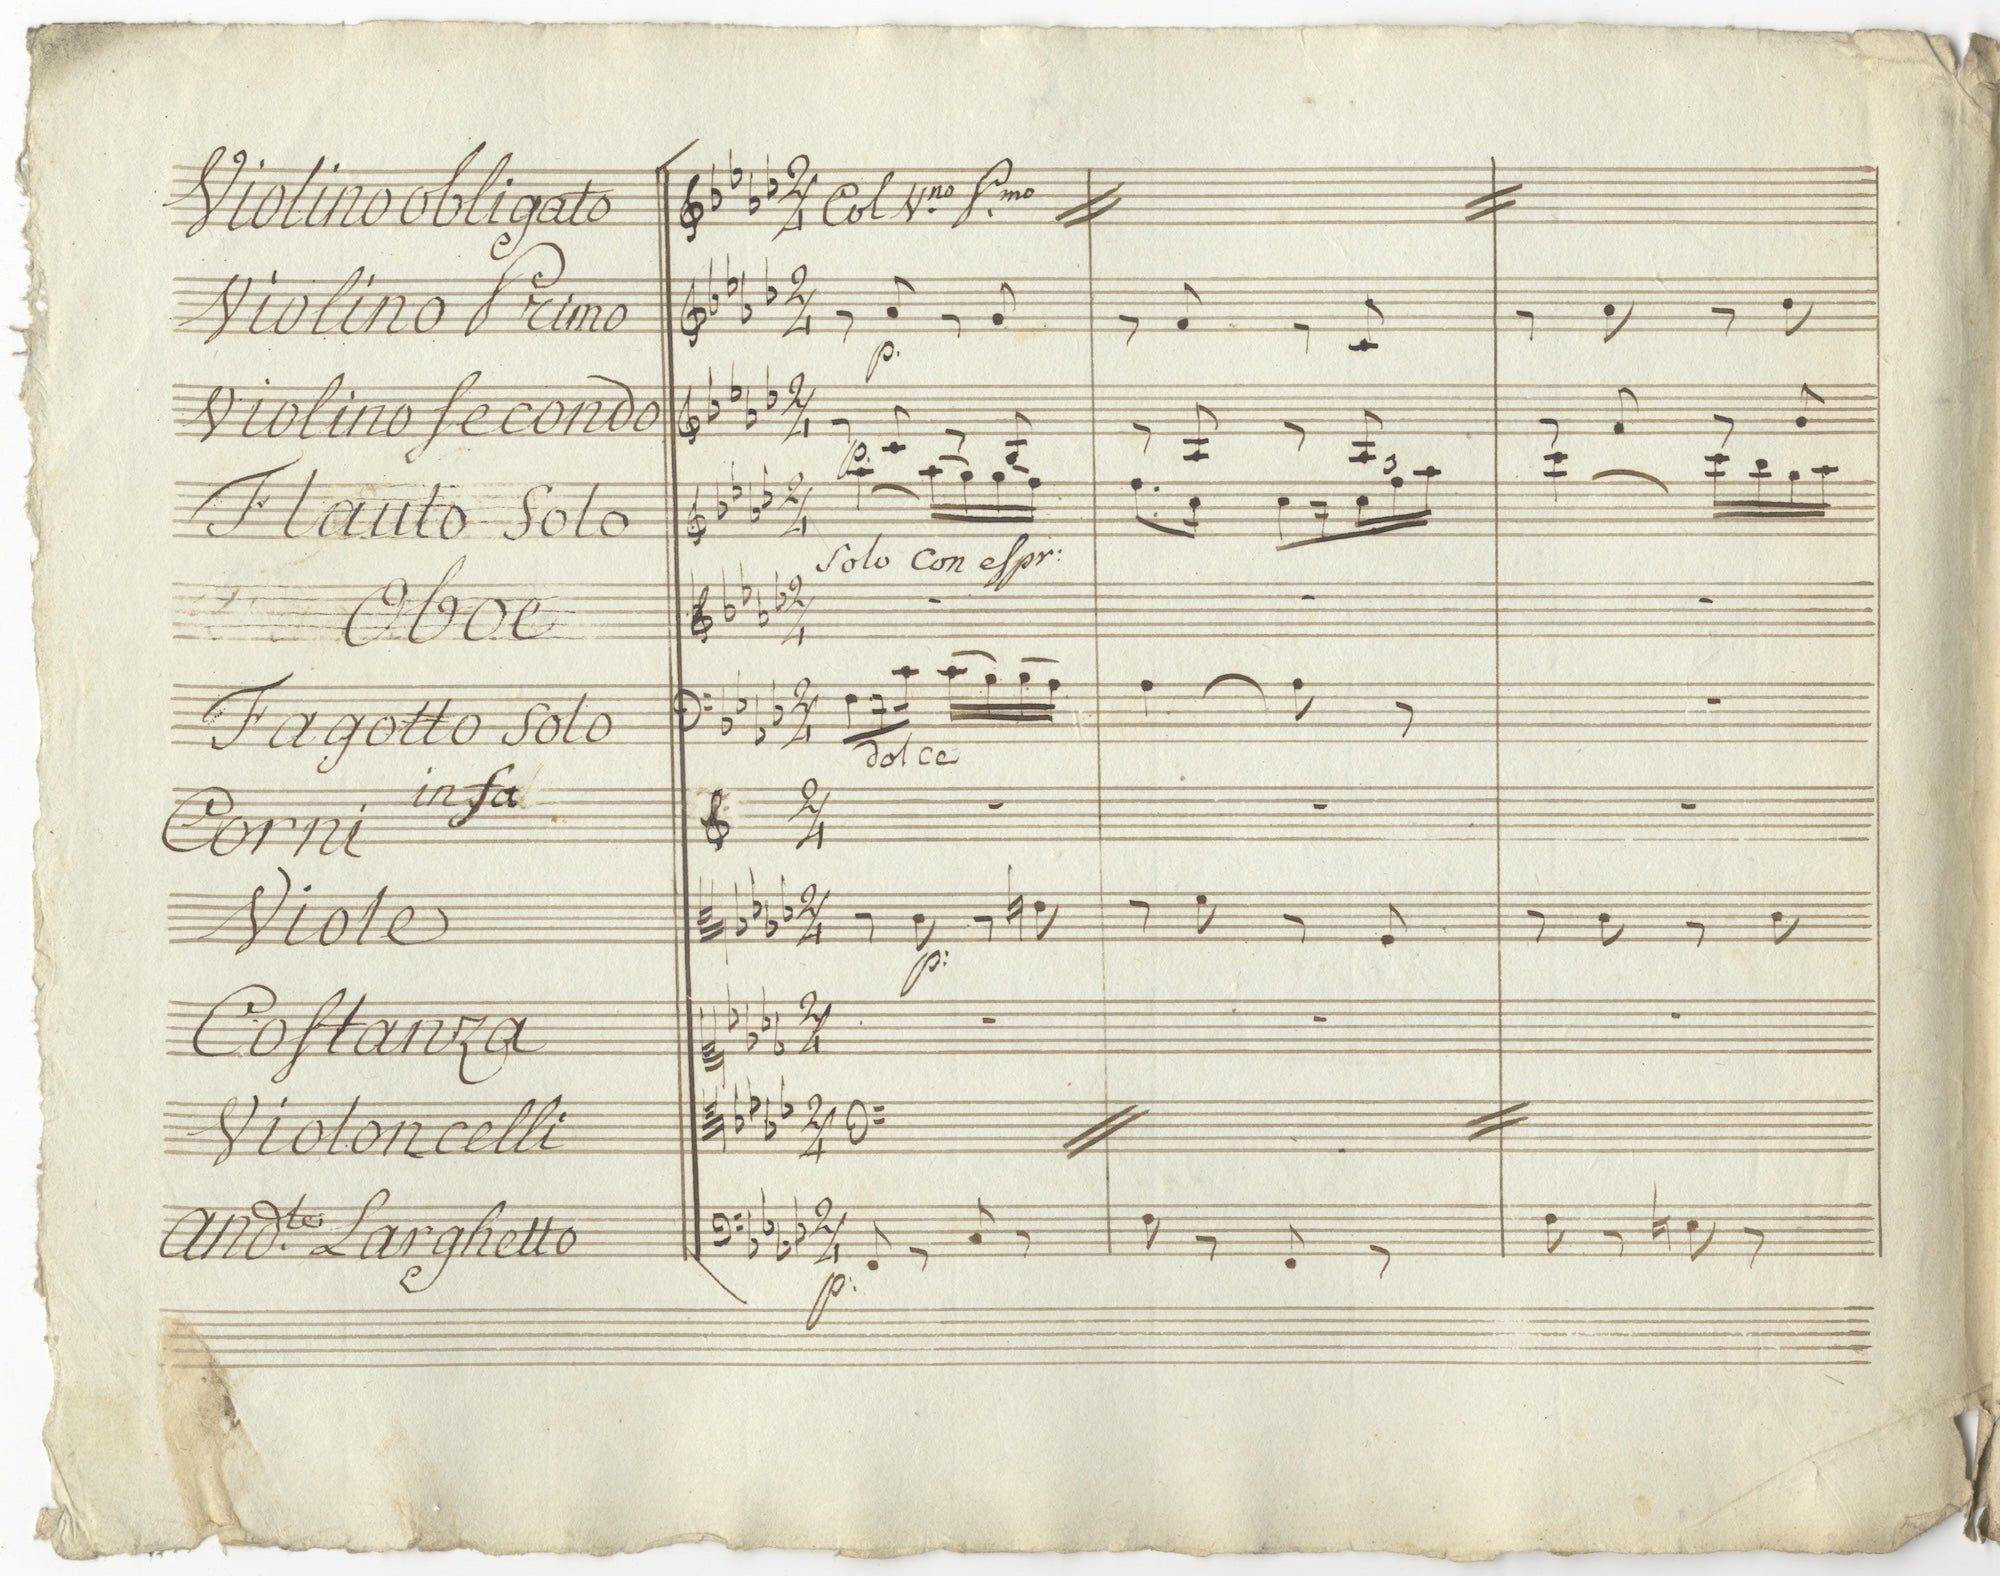 Violino obligato 2/4 Col Vno Pmo
Violino Primo 2/4
p.
Violino Secondo 2/4
p.
3
Flauto Solo 2/4
Solo con espr:
Oboe 2/4
Fagotto Solo 2/4
dolce
in fa
Corni 2/4
Viole 2/4
p:
Costanza 2/4
Violoncelli 2/4
Andte Larghetto 2/4
p: